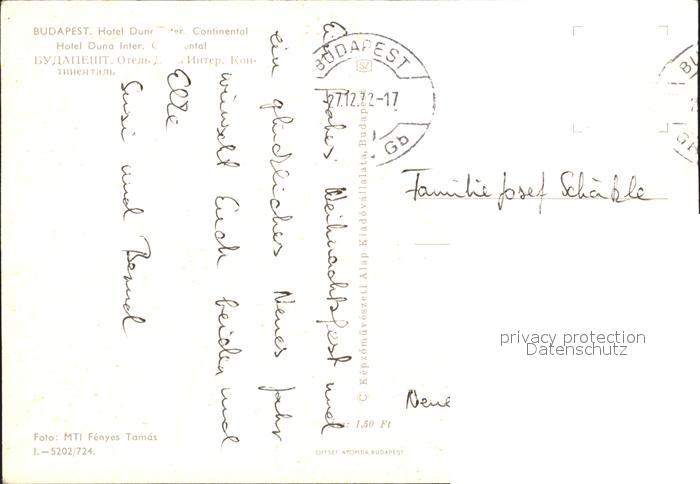 BUDAPEST. Hotel Duna Inter. Continental
Hotel Duna Inter. Continental
БУДАПЕШТ. Отель Дуна Интер. Кон-
тиненталь
Ein frohes Weihnachtsfest und
ein glückliches Neues Jahr
wünscht Euch beiden und
Elke
Susi und Bernd
BUDAPEST
SZ
27.12.72-17
Gb
© Képzőművészeti Alap Kiadóvállalata, Budapest
Familie Josef Schäkle
privacy protection
Datenschutz
Neue
1,50 Ft
Foto: MTI Fényes Tamás
I.—5202/724.
OFFSET NYOMDA, BUDAPEST